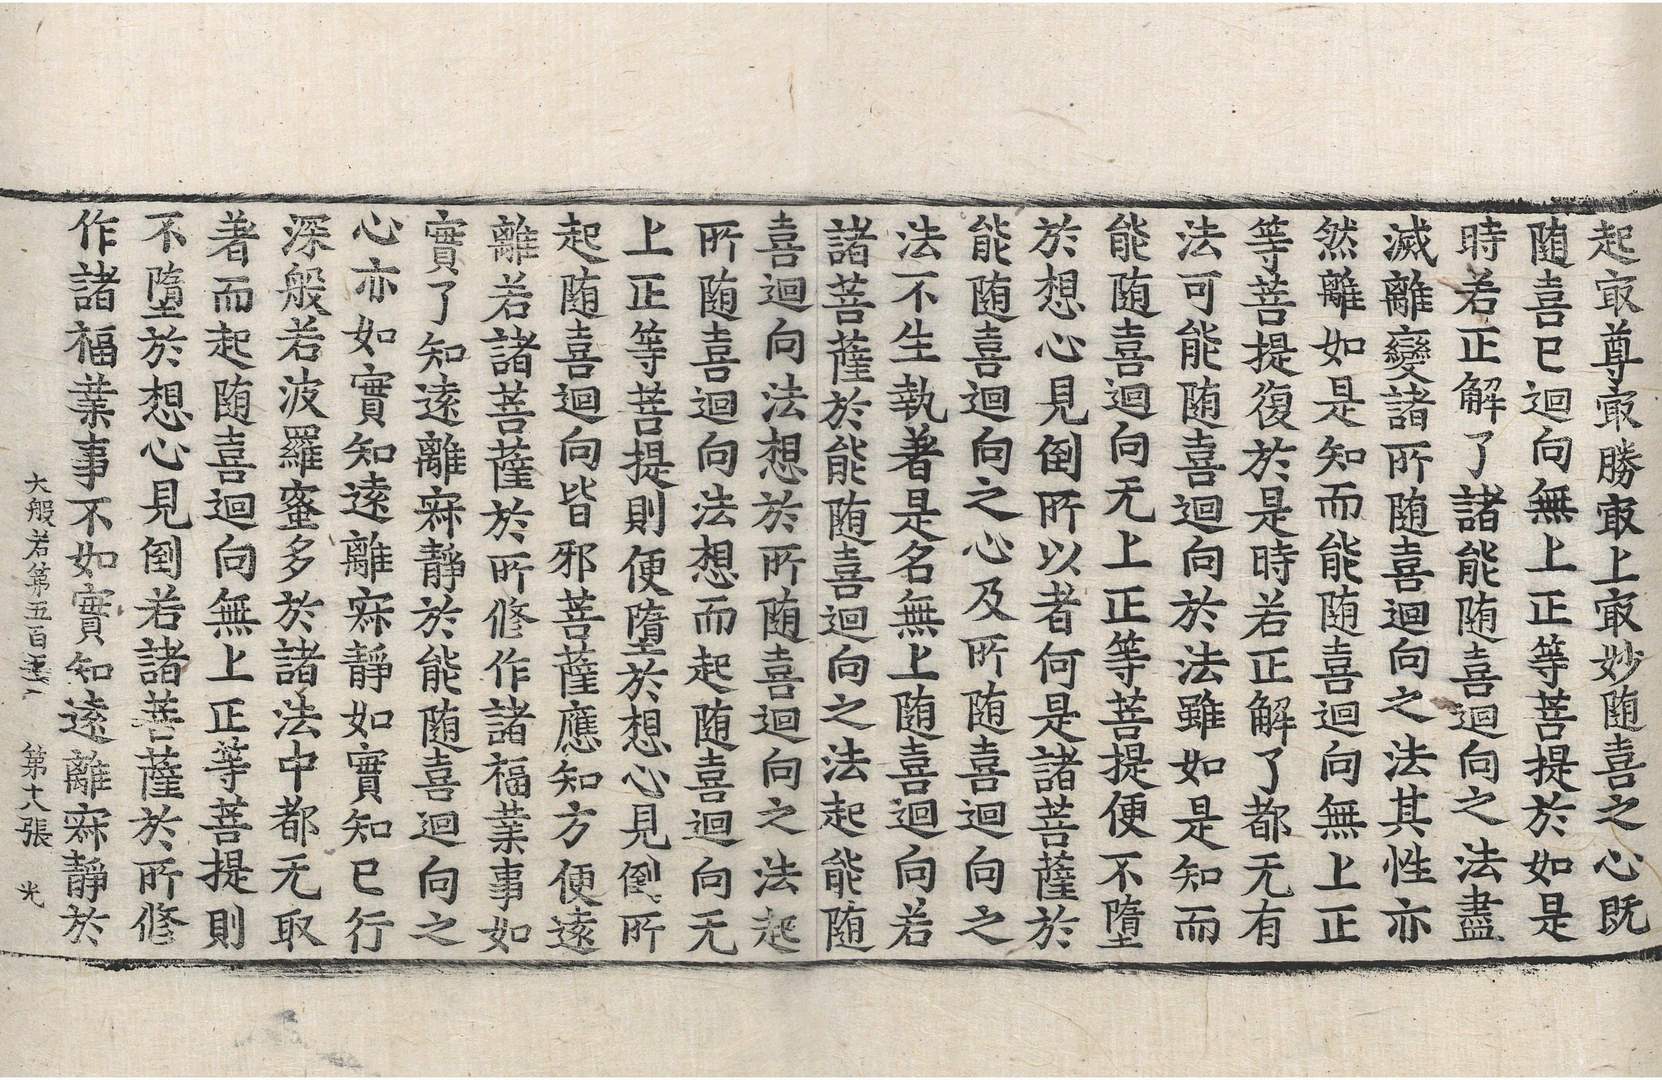 起㝡尊㝡勝㝡上㝡妙随喜之心既
随喜已迴向無上正等菩提於如是
時若正解了諸能随喜迴向之法盡
滅離變諸所随喜迴向之法其性亦
然離如是知而能随喜迴向無上正
等菩提復於是時若正解了都无有
法可能随喜迴向於法雖如是知而
能随喜迴向无上正等菩提便不墮
於想心見倒所以者何是諸菩薩於
能随喜迴向之心及所随喜迴向之
法不生執著是名無上随喜迴向若
諸菩薩於能随喜迴向之法起能随
喜迴向法想於所随喜迴向之法起
所随喜迴向法想而起随喜迴向无
上正等菩提則便墮於想心見倒所
起随喜迴向皆邪菩薩應知方便遠
離若諸菩薩於所修作諸福業事如
實了知遠離寂靜於能随喜迴向之
心亦如實知遠離寂靜如實知已行
深般若波羅蜜多於諸法中都无取
著而起随喜迴向無上正等菩提則
不墮於想心見倒若諸菩薩於所修
作諸福業事不如實知遠離寂靜於
大般若第五百 第十八張 光